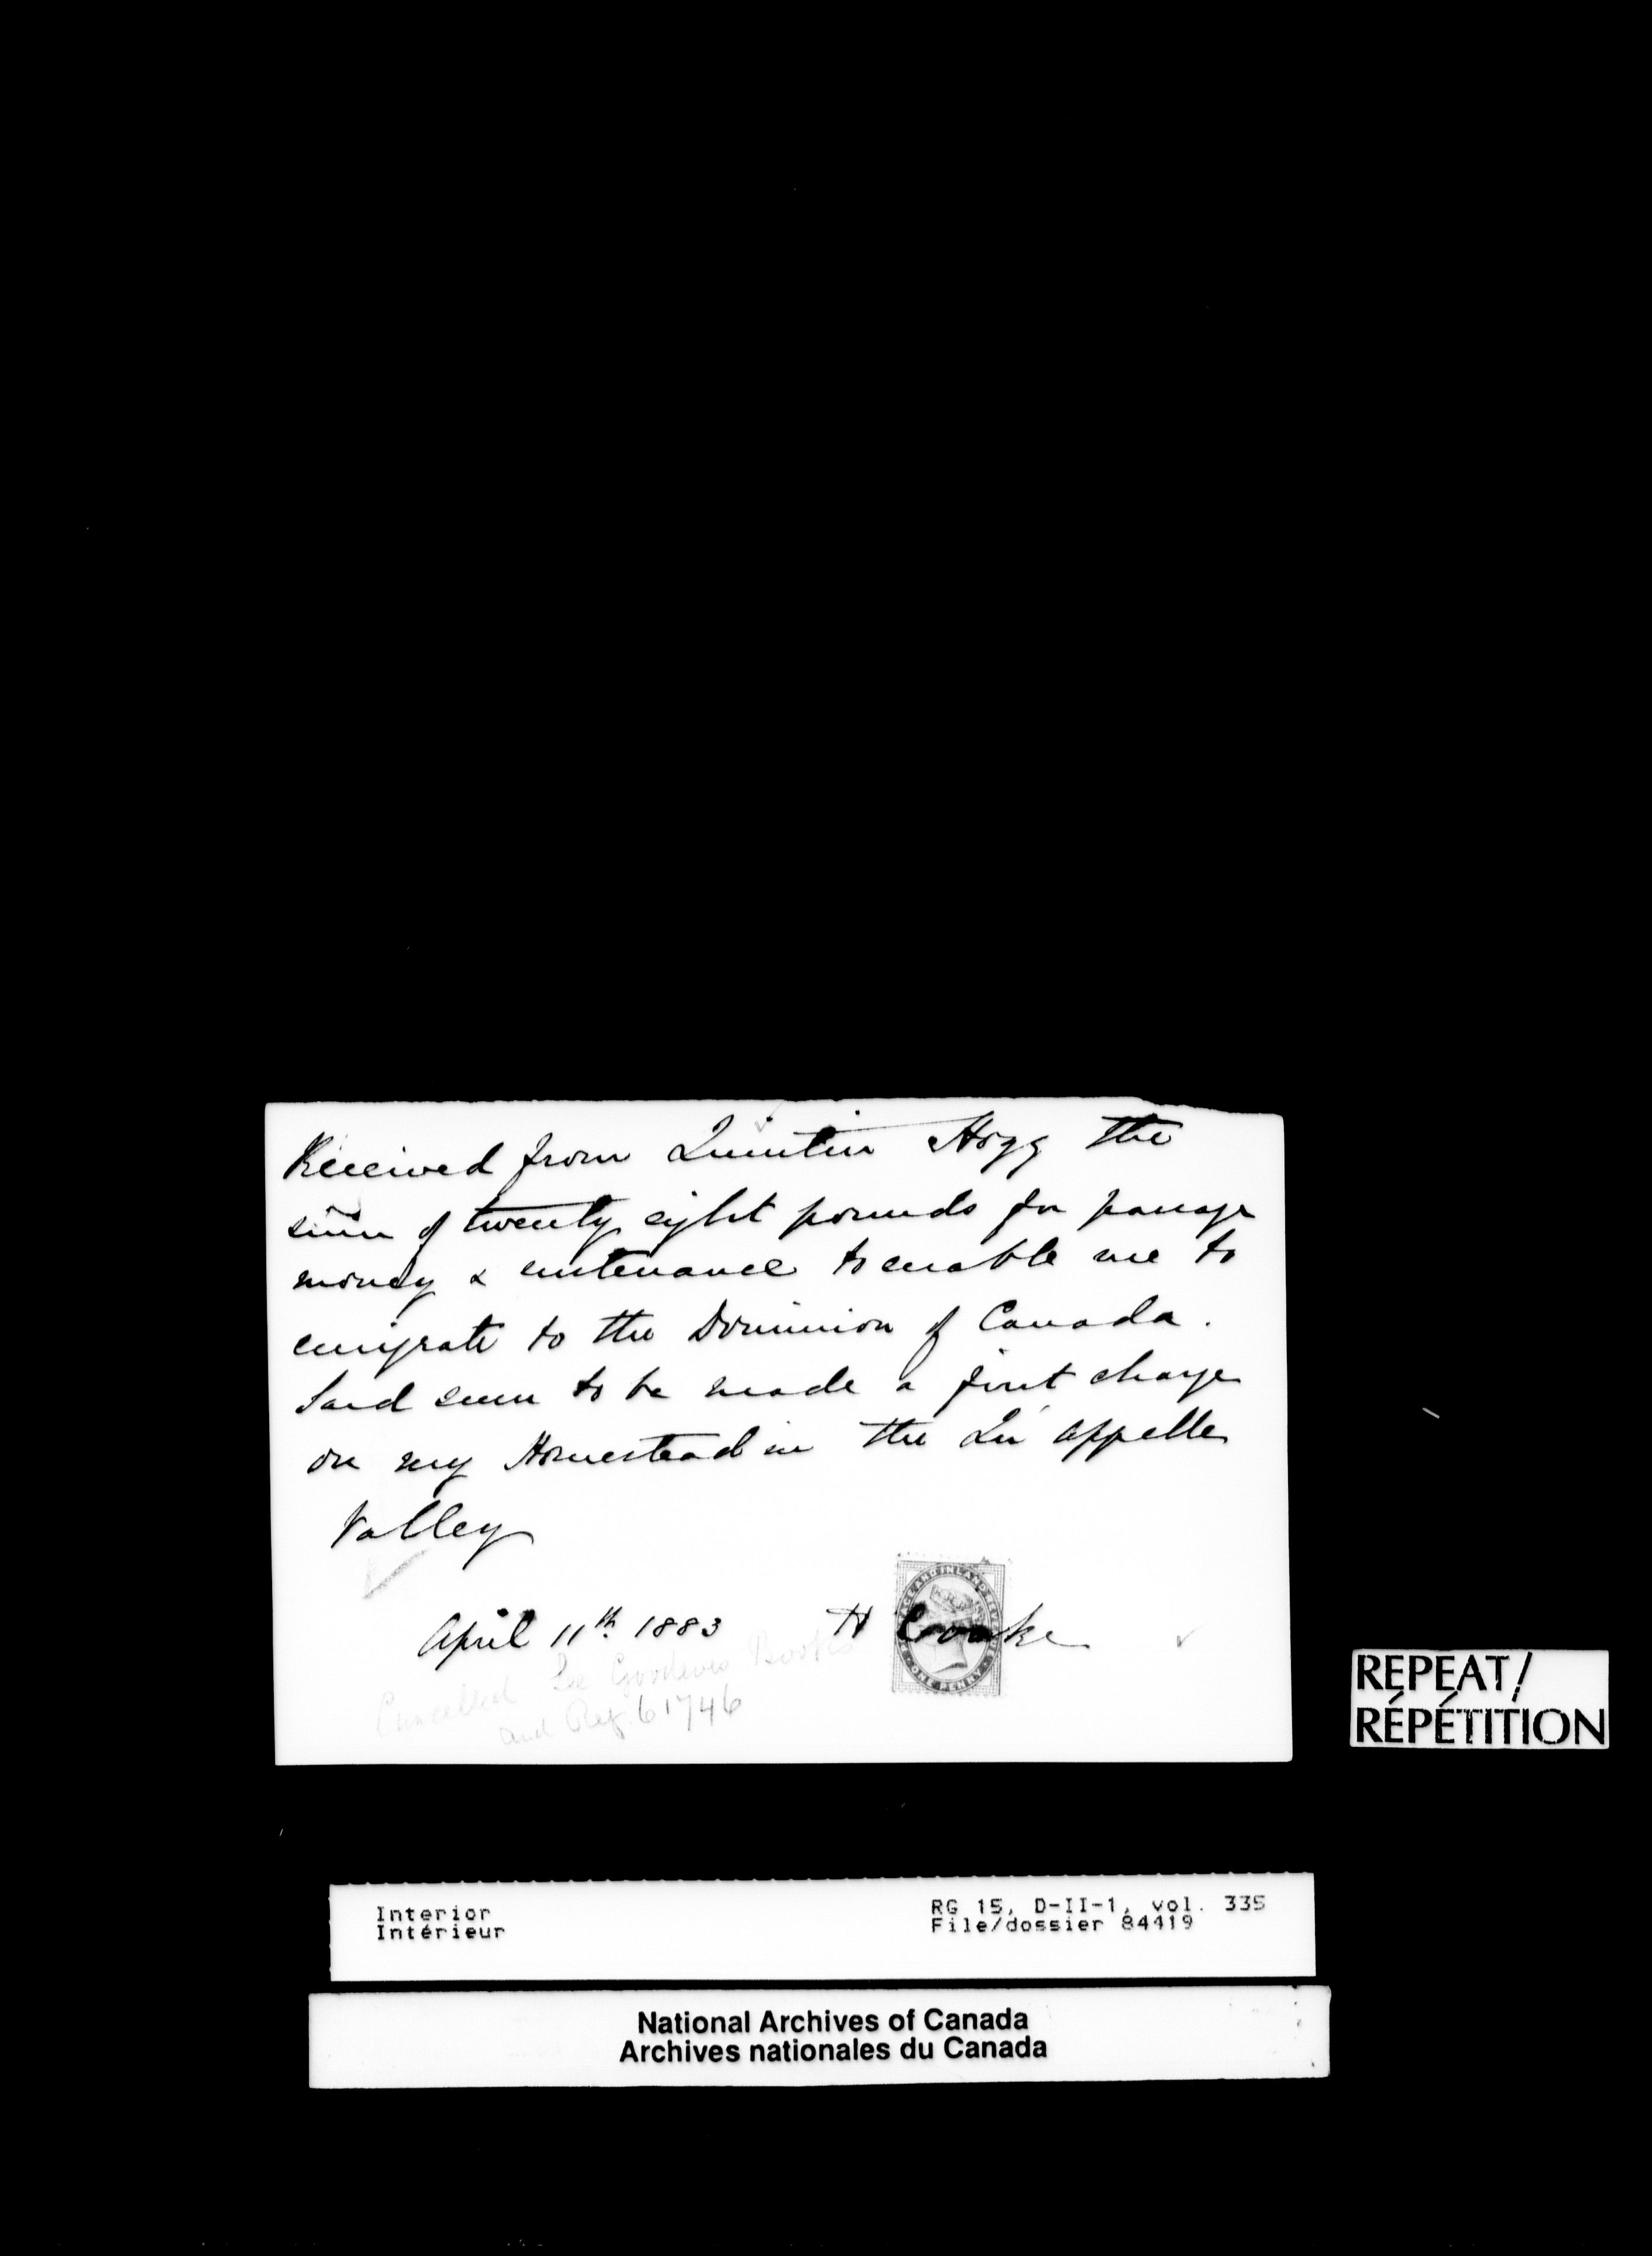 Received from Quintin Hogg the
sum of twenty eight pounds for passage
money & sustenance to enable me to
emigrate to the Dominion of Canada.
Said sum to be made a first charge
on my Homestead in the Qu'appelle
Valley
April 11th 1883 H Crooke
AND INLAND REVENUE
ONE PENNY
Cancelled See Books
and Ref. 61746
REPEAT/
RÉPÉTITION
Interior RG 15, D-II-1, vol. 335
Intérieur File/dossier 84419
National Archives of Canada
Archives nationales du Canada